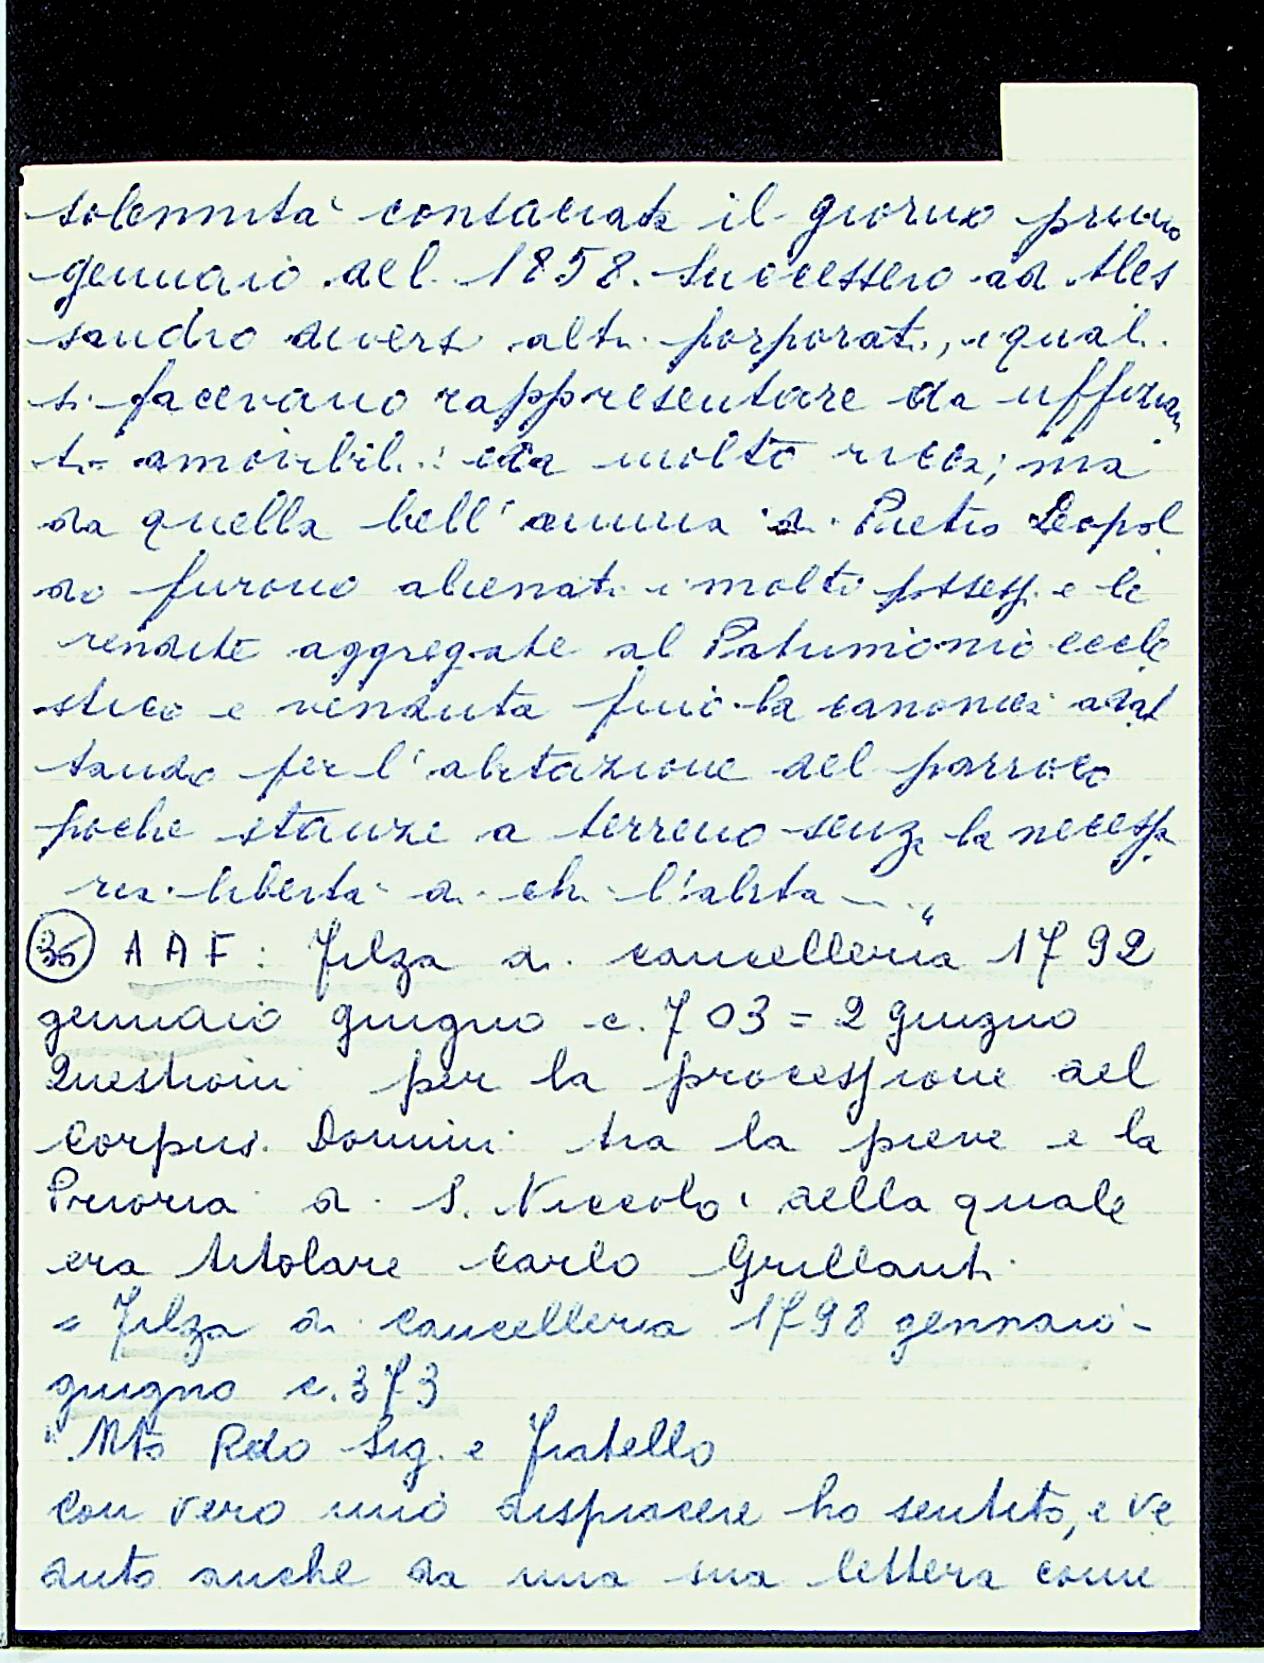 solennità consacrata il giorno primo
gennaio del 1858. Successero ad Ales
sandro diversi altri porporati, i quali
si facevano rappresentare da uffizian
ti amovibili: era molto ricca; ma
da quella bell'anima di Pietro Leopol
do furono alienati i molti possessi e le
rendite aggregate al Patrimonio eccle
stico e venduta fino la canonica adat
tando per l'abitazione del parroco
poche stanze a terreno senza la necessa
ria libertà di chi l'abita ... "
35 AAF: Filza di cancelleria 1792
gennaio giugno c. 703 = 2 giugno
Questioni per la processione del
Corpus Domini tra la pieve e la
Prioria di S. Niccolò della quale
era titolare Carlo Grillanti
= Filza di cancelleria 1798 gennaio -
giugno c. 373
"Mto Rdo Sig. e Fratello
con vero mio dispiacere ho sentito, e ve
duto anche da una sua lettera come